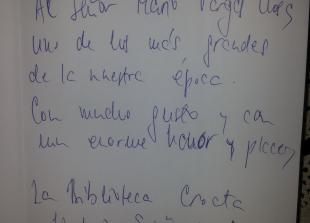 Al Señor Mario Vargas Llosa
uno de los más grandes
de la nuestra época.
Con mucho gusto y con
un enorme honor y placer,
La Biblioteca Croata